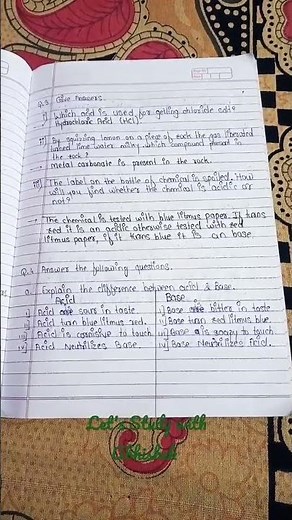 Q.3. Give Answers.
i] Which acid is used for getting chloride salt?
Hydrochloric Acid (HCl).
ii] By squizing lemon on a piece of rock the gas liberated
turns lime water milky which compound present is
the rock?
→ Metal carbonate is present in the rock.
iii] The label on the bottle of chemical is spoiled. How
will you find whether the chemical is acidic or
not?
→ The chemical is tested with blue litmus paper. If turns
red it is an acidic otherwise tested with red
litmus paper, if it turns blue it is an base.
Q.4 Answer the following questions.
a. Explain the difference between acid & base.
Acid Base
i] Acid are sours in taste i] Base are bitter in taste
ii] Acid turn blue litmus red. ii] Base turn red litmus blue.
iii] Acid is corrosive to touch iii] Base is soapy to touch
iv] Acid Neutrilizes Base. iv] Base Neutrilizes Acid.
Let's Study with